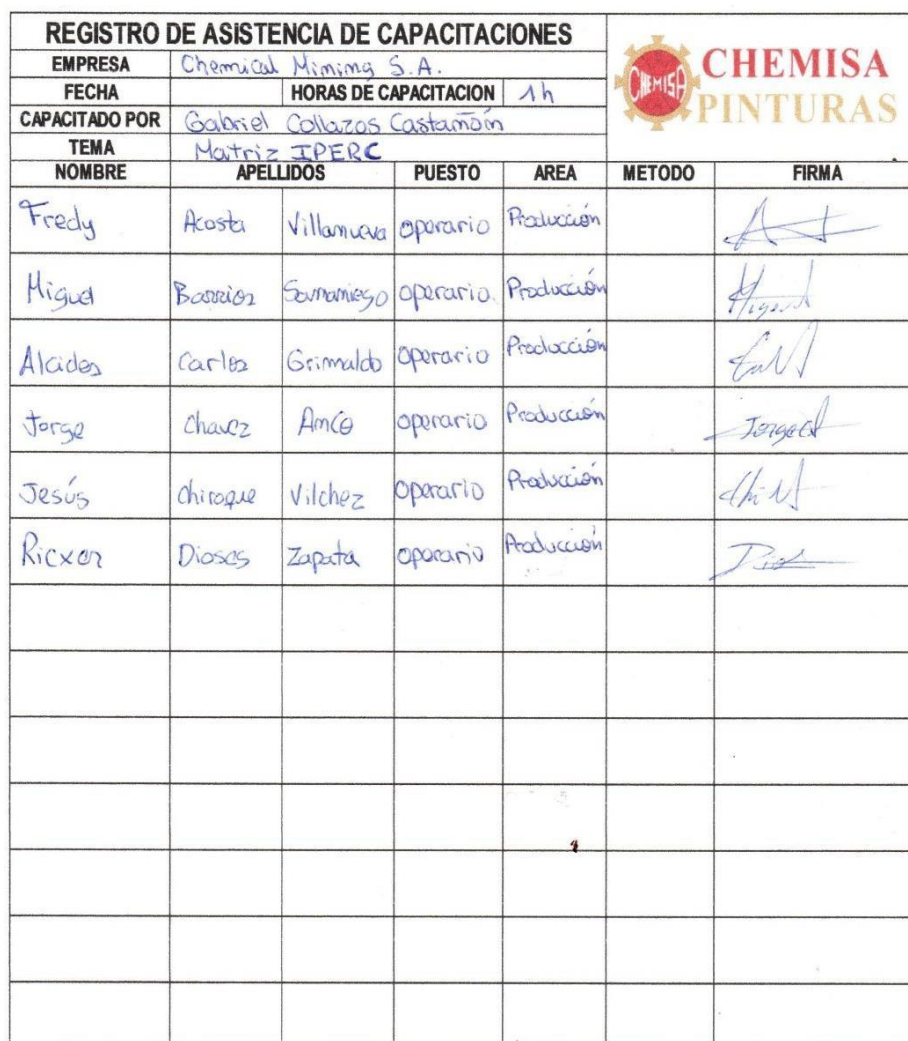 REGISTRO DE ASISTENCIA DE CAPACITACIONES
CHEMISA
CHEMISA
PINTURAS
EMPRESA Chemical Mining S.A.
FECHA HORAS DE CAPACITACION 1h
CAPACITADO POR Gabriel Collazos Castañón
TEMA Matriz IPERC
NOMBRE APELLIDOS PUESTO AREA METODO FIRMA
Fredy Acosta Villanueva operario Producción
Miguel Barrios Samaniego operario Producción Miguel
Alcides Carlos Grimaldo operario Producción
Jorge Chavez Amco operario Producción
Jesús Chiroque Vilchez operario Producción
Ricxer Dioses Zapata operario Producción